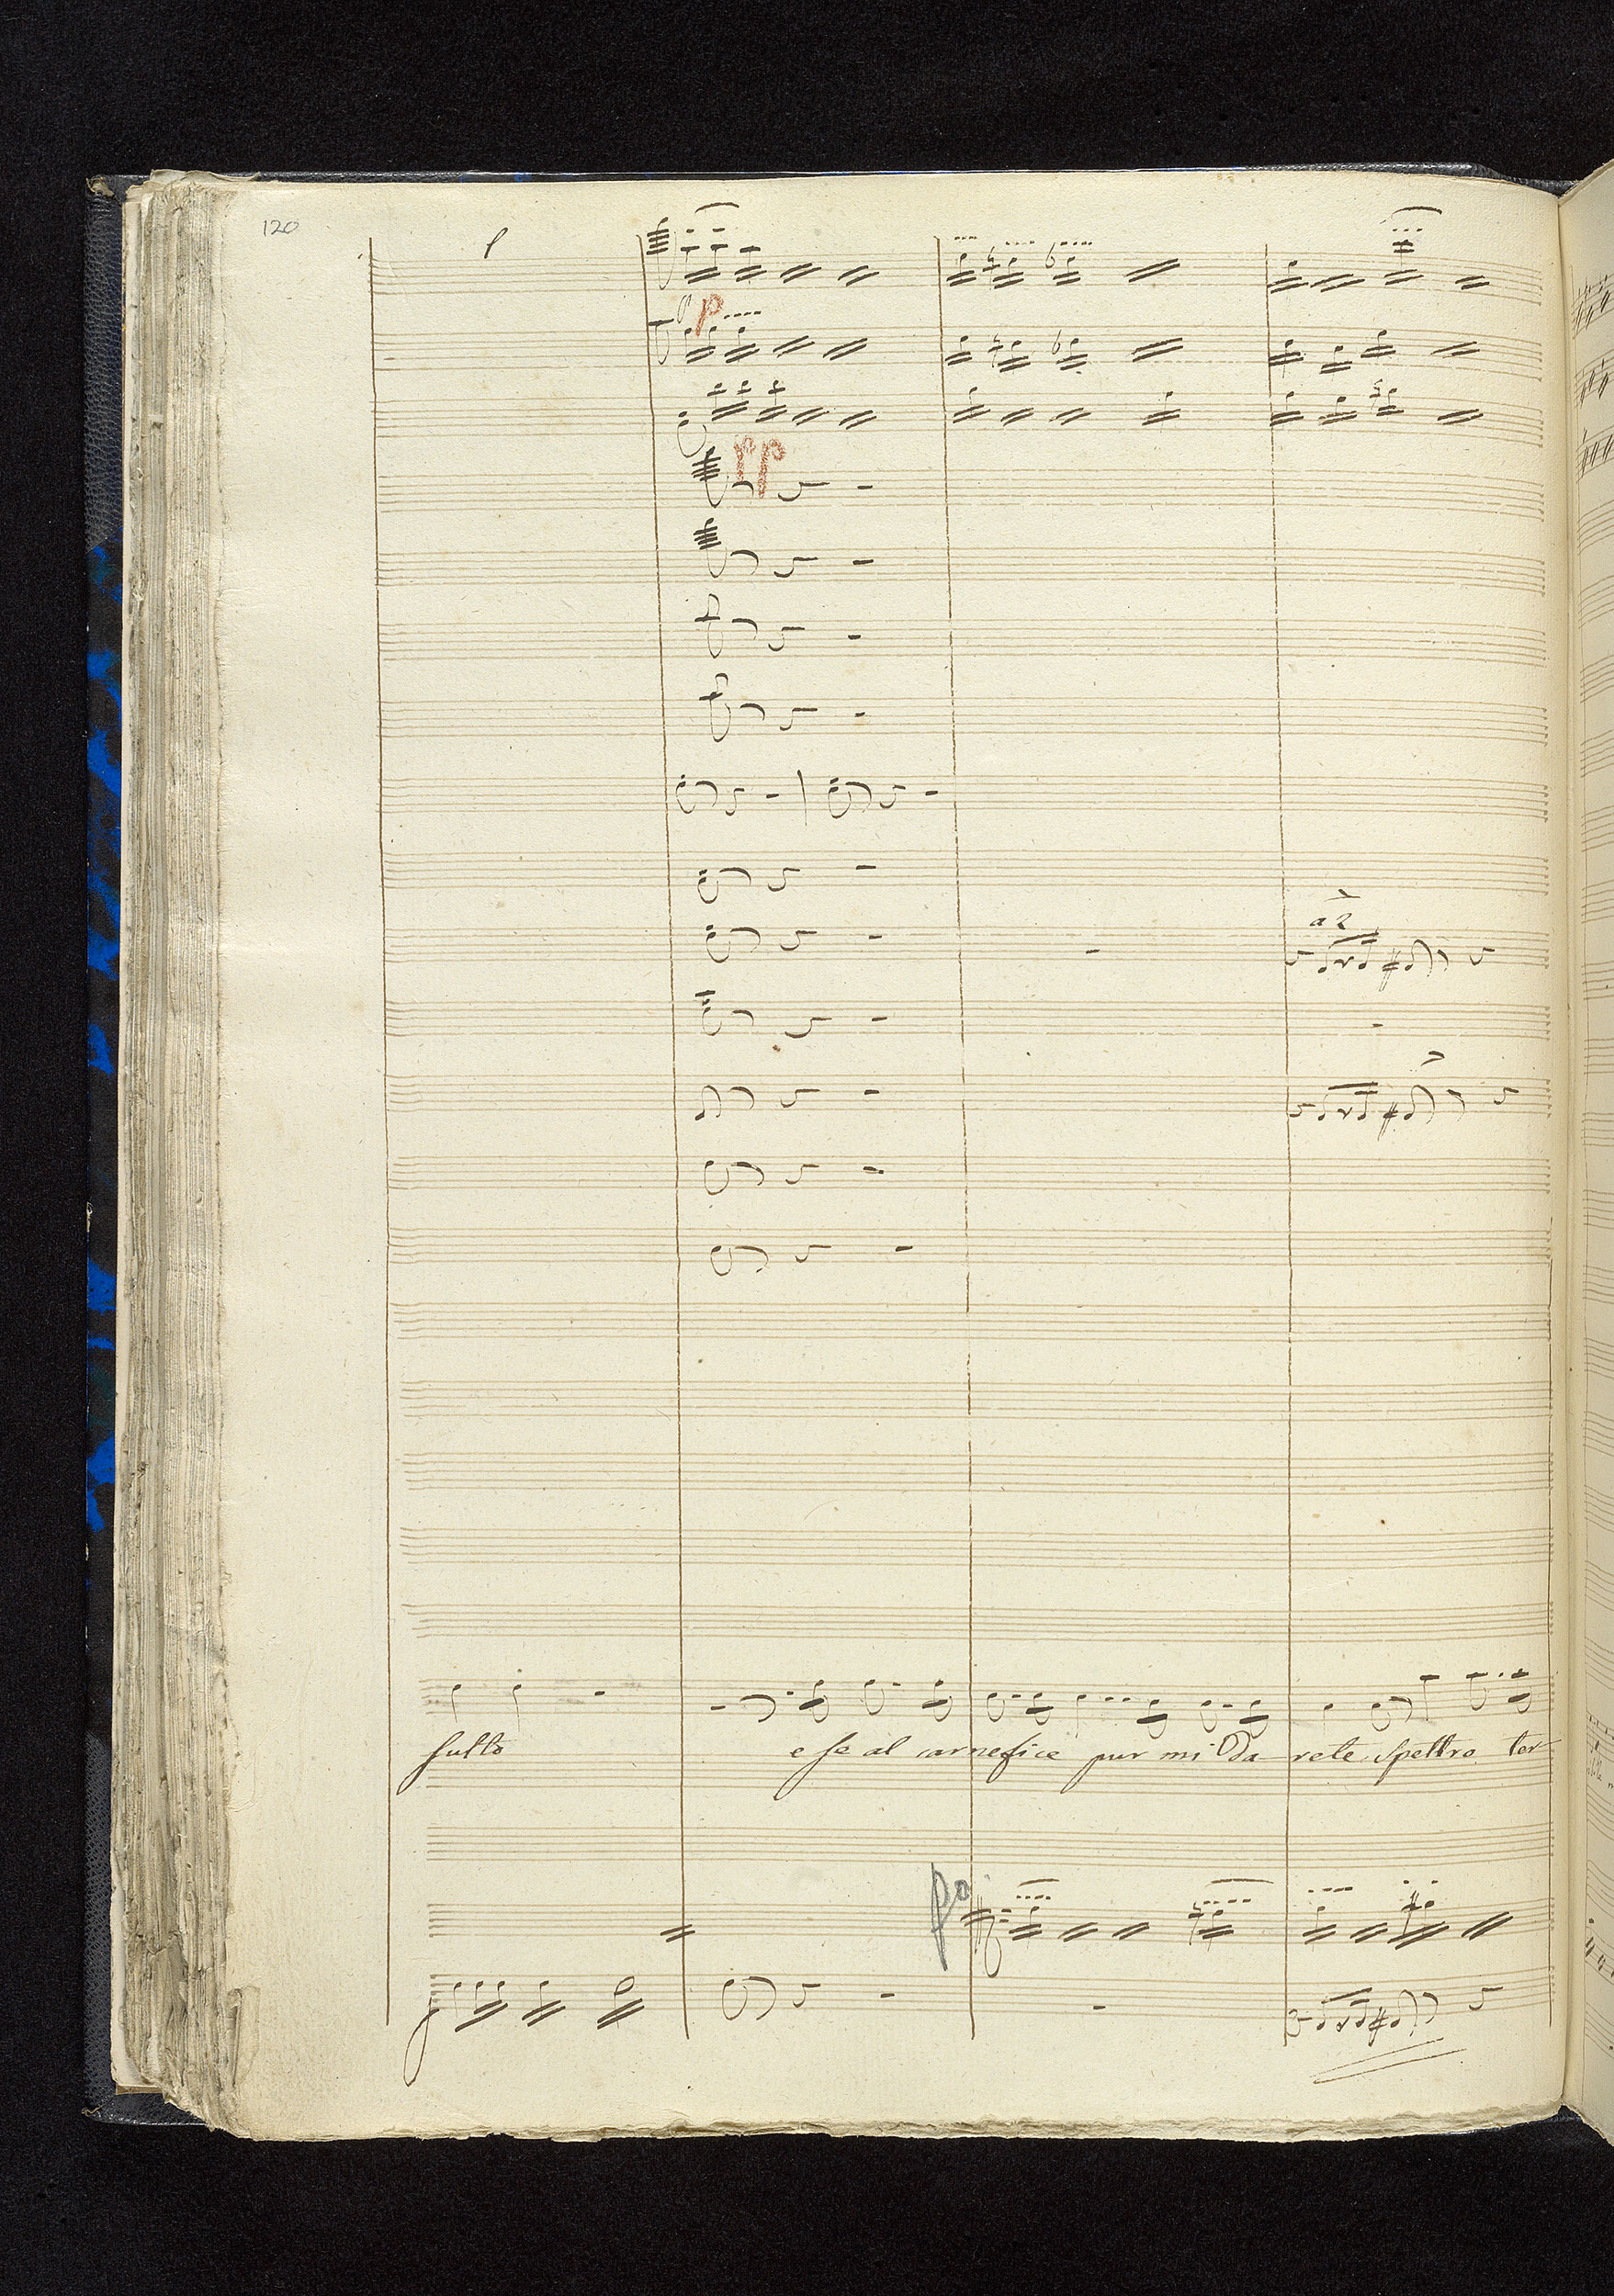 120
p
pp
a 2
sulto e se al carnefice pur mi darete spettro ter
po